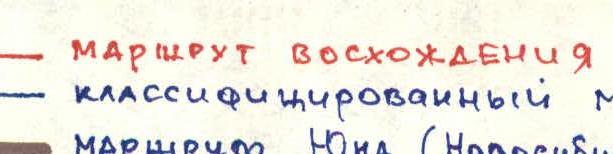 — МАРШРУТ ВОСХОЖДЕНИЯ
— КЛАССИФИЦИРОВАННЫЙ М
МАРШРУТ